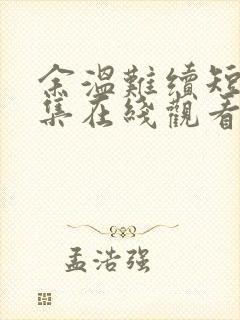 余溫難續短
集在綫觀看
孟浩强